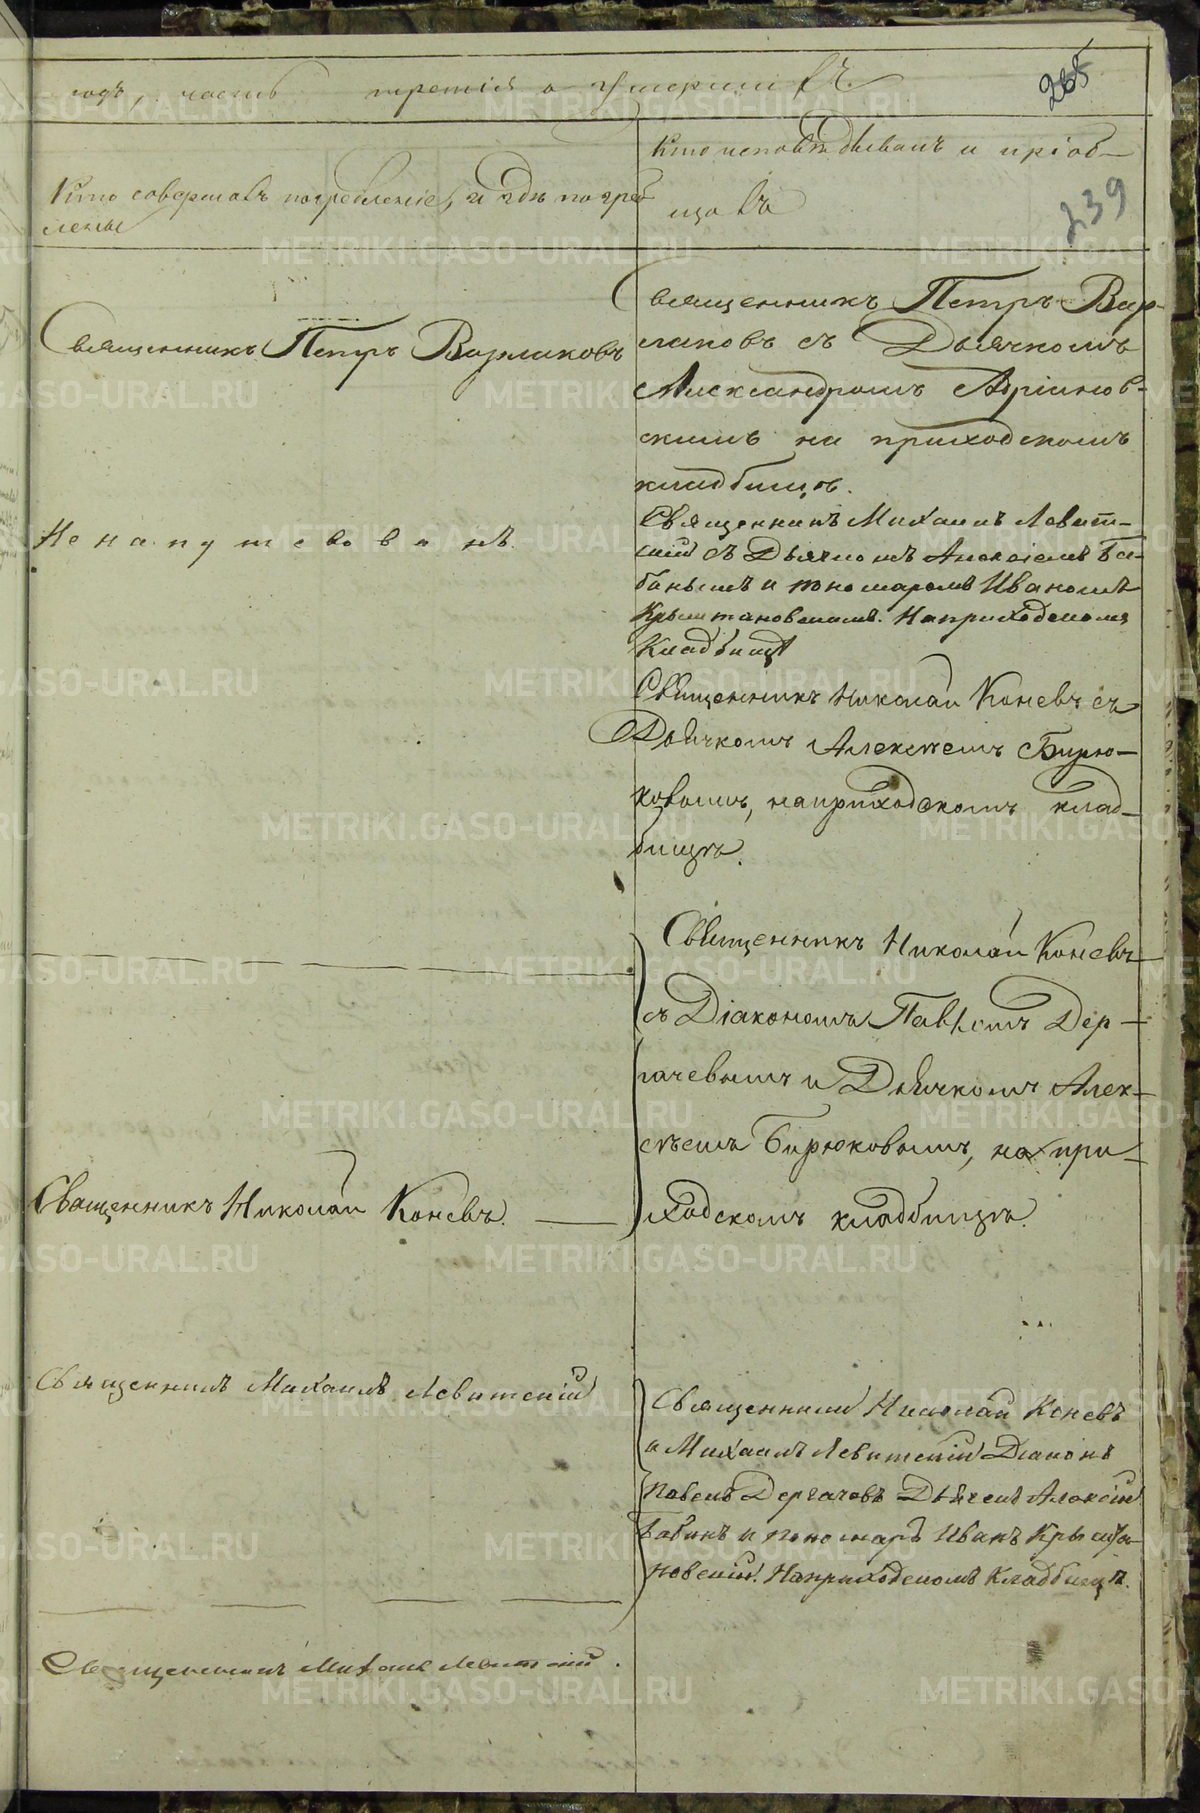 годъ, часть третія о умершихъ.
265
Кто исповѣдывалъ и пріоб-
щалъ
239
Кто совершалъ погребеніе, и гдѣ погреб
лены
Священникъ Петръ Вар-
лаковъ съ Дьячкомъ
Александромъ Адріанов-
скимъ на приходскомъ
кладбищѣ.
Священникъ Петръ Варлаковъ
Не напутствованъ.
Священникъ Михаилъ Левит-
скій съ Дьячкомъ Алексіемъ Ба-
бинымъ и пономаремъ Иваномъ
Крыштановскимъ. На приходскомъ
Кладбищѣ
Священникъ Николай Коневъ съ
Дьячкомъ Алексѣемъ Бирю-
ковымъ, на приходскомъ клад-
бищѣ.
Священникъ Николай Коневъ
съ Діакономъ Павломъ Дер-
гачевымъ и Дьячкомъ Алек-
сѣемъ Бирюковымъ, на при-
ходскомъ кладбищѣ.
Священникъ Николай Коневъ.
Священникъ Михаилъ Левитскій
Священники Николай Коневъ
и Михаилъ Левитскій Діаконъ
Павелъ Дергачовъ Дьячекъ Алексій
Бабинъ и пономарь Иванъ Крышта-
новскій. На приходскомъ Кладбищѣ.
Священникъ Михаилъ Левитскій.
METRIKI.GASO-URAL.RU